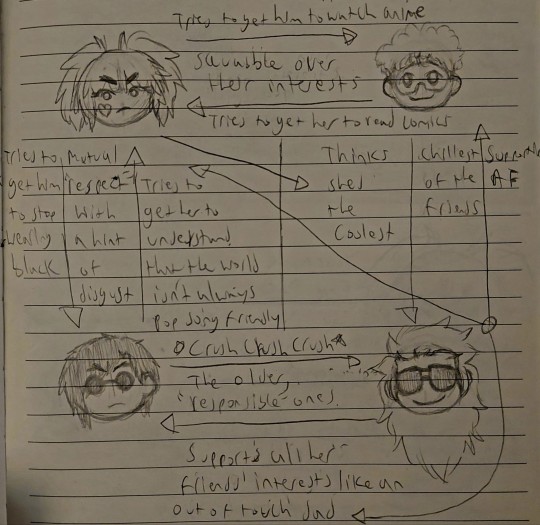 Tries to get him to watch anime
squabble over
their interests
Tries to get her to read comics
Tries to
get him
to stop
wearing
black
mutual
respect
with
a hint
of
disgust
Tries to
get her to
understand
that the world
isn't always
pop song friendly
Thinks
shes
the
coolest
chillest
of the
friends
Supportive
AF
Crush Crush Crush
The older,
"responsible" ones.
Supports all her
friends' interests like an
out of touch dad